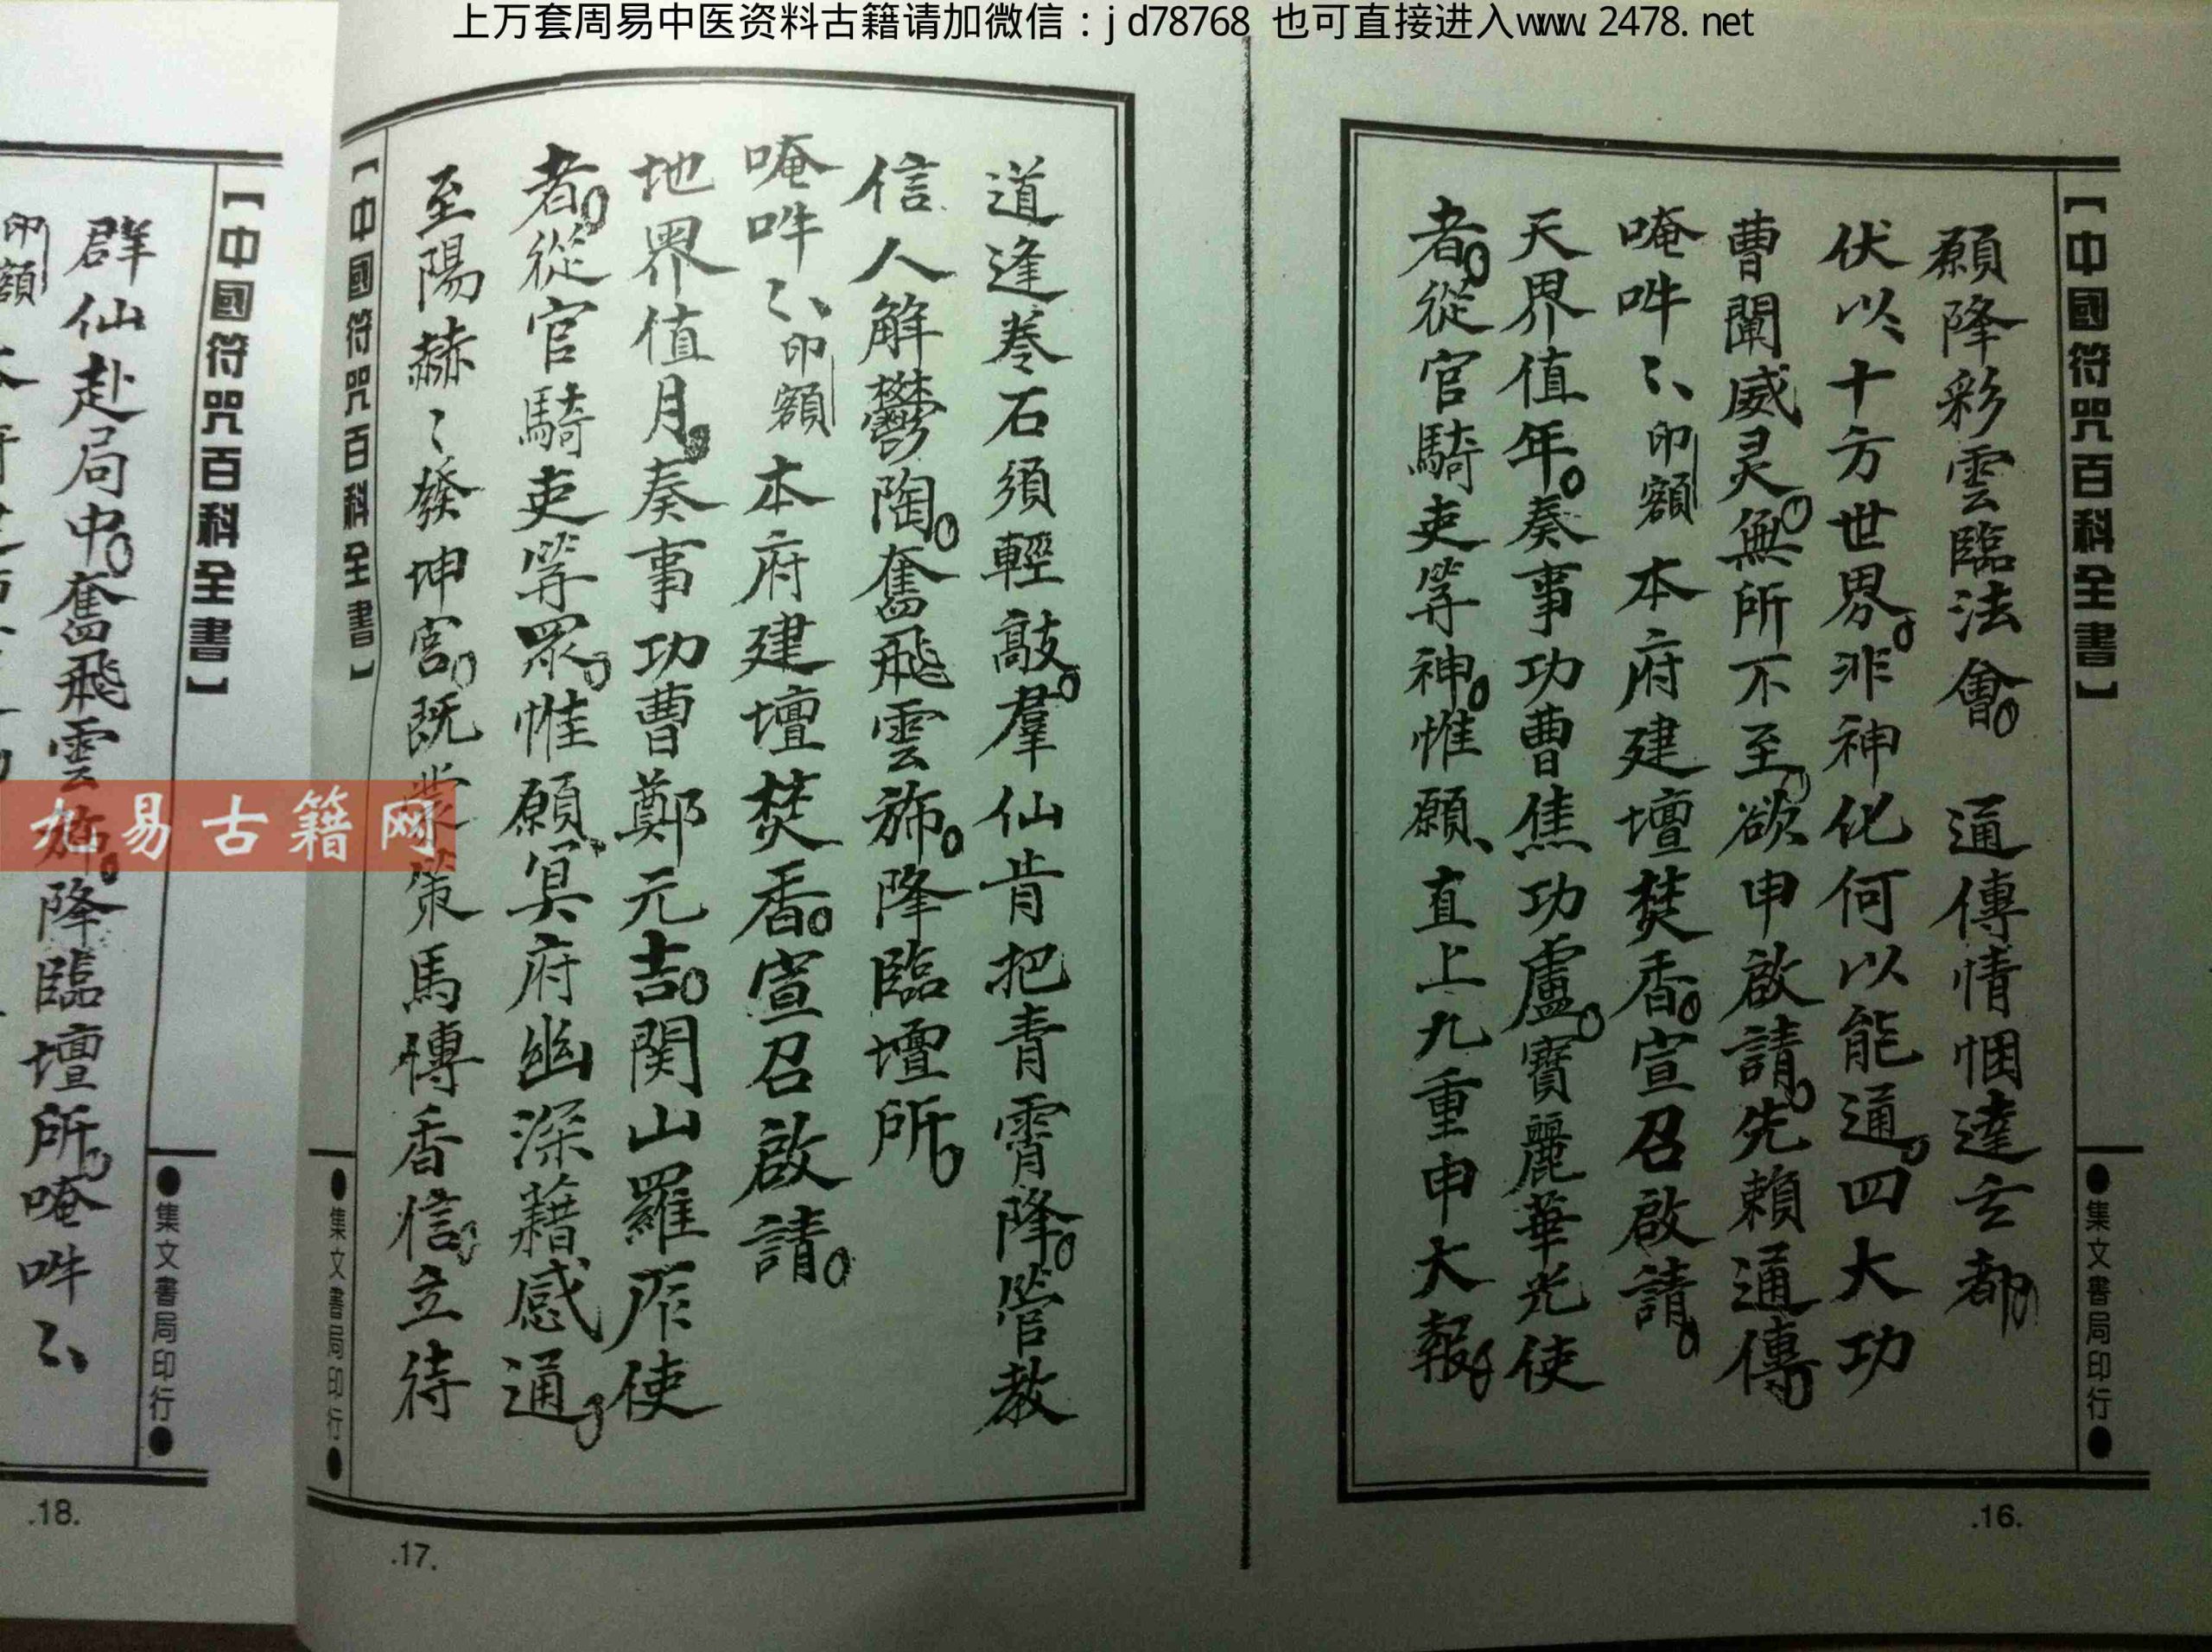 上万套周易中医资料古籍请加微信：jd78768 也可直接进入www.2478.net
【中國符咒百科全書】
●集文書局印行●
願降彩雲臨法會。 通傳情悃達玄都。
伏以、十方世界。非神化何以能通。四大功
曹闡威灵。無所不至。欲申啟請。先賴通傳。
唵吽〻印額 本府建壇焚香。宣召啟請。
天界值年。奏事功曹焦功盧。寶麗華光使
者。從官騎吏等神。惟願、直上九重申大報。
.16.
道逢卷石須輕敲。羣仙肯把青霄降。管教
信人解鬱陶。奮飛雲斾。降臨壇所。
唵吽〻印額 本府建壇焚香。宣召啟請。
地界值月。奏事功曹鄭元吉。関山羅厏使
者。從官騎吏等眾。惟願、冥府幽深藉感通。
至陽赫〻發坤宮。既蒙策馬傳香信。立待
【中國符咒百科全書】
●集文書局印行●
.17.
【中國符咒百科全書】
●集文書局印行●
群仙赴局中。奮飛雲斾。降臨壇所。唵吽〻
印額
.18.
九易古籍网